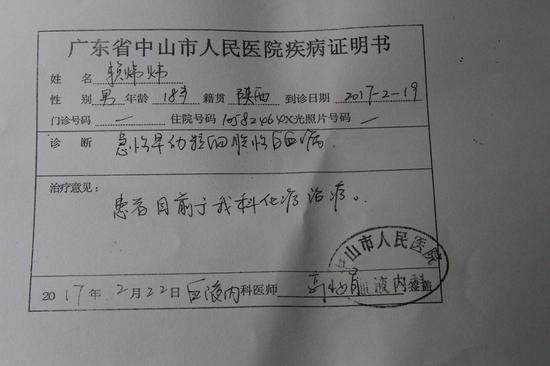 广东省中山市人民医院疾病证明书
姓 名 赖炜炜
性 别 男 年龄 18岁 籍贯 陕西 到诊日期 2017-2-19
门诊号码 — 住院号码 X光照片号码 —
诊 断 急性早幼粒细胞性白血病
治疗意见：
患者目前于我科化疗治疗。
中山市人民医院
2017年2月22日 血液内科医师 签章
血液内科